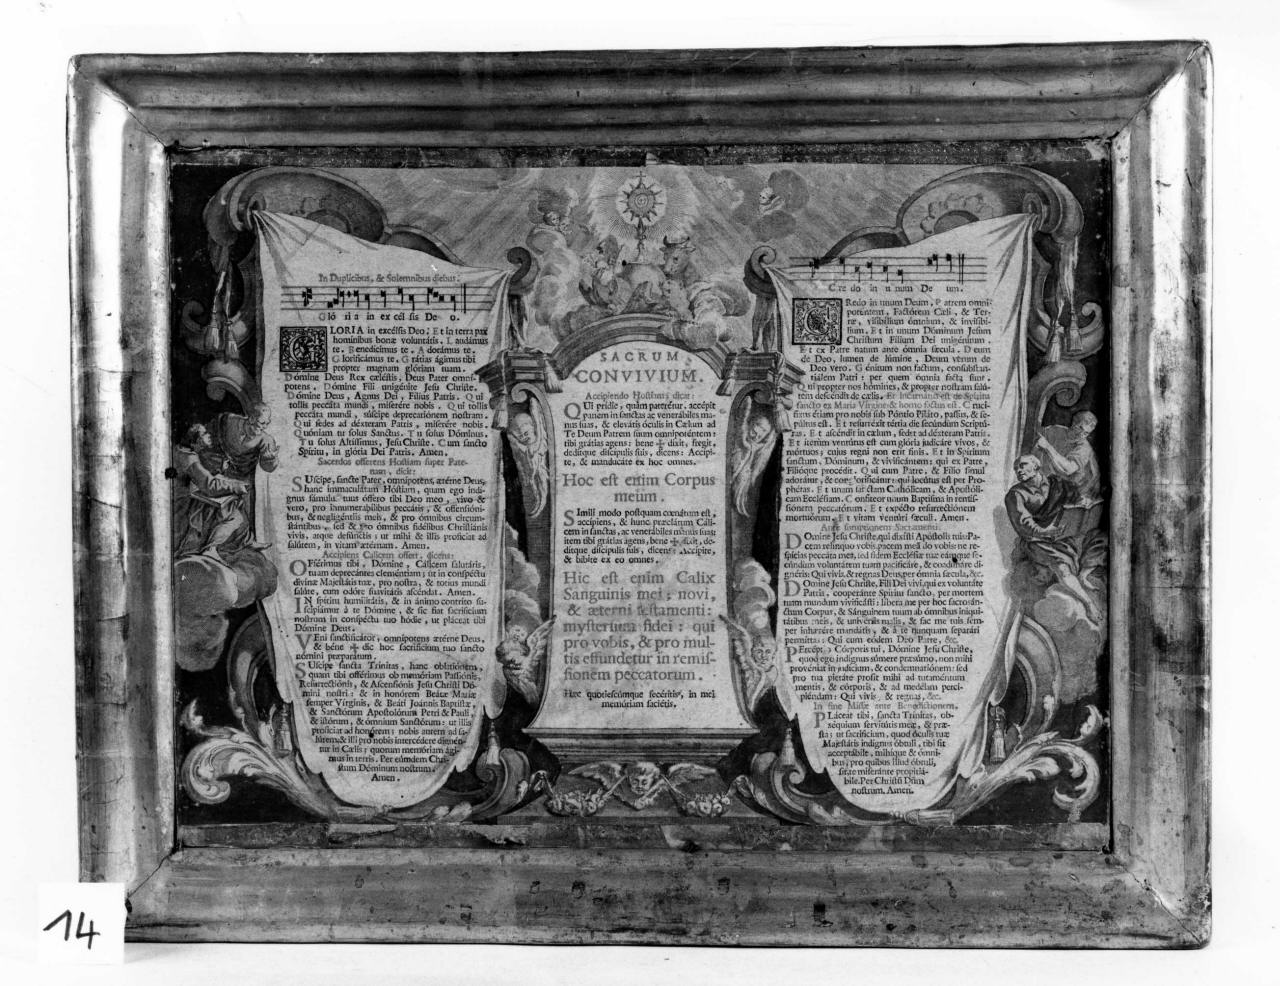 In Duplicibus, & Solemnibus diebus.
Gló ri a in ex cél sis De o.
GLORIA in excélsis Deo. Et in terra pax
homínibus bonæ voluntátis. Laudámus
te. Benedícimus te. Adorámus te.
Glorificámus te. Grátias ágimus tibi
propter magnam glóriam tuam.
Dómine Deus Rex cæléstis, Deus Pater omní-
potens. Dómine Fili unigénite Jesu Christe.
Dómine Deus, Agnus Dei, Fílius Patris. Qui
tollis peccáta mundi, miserére nobis. Qui tollis
peccáta mundi, súscipe deprecatiónem nostram.
Qui sedes ad déxteram Patris, miserére nobis.
Quóniam tu solus Sanctus. Tu solus Dóminus.
Tu solus Altíssimus, Jesu Christe. Cum sancto
Spíritu, in glória Dei Patris. Amen.
Sacerdos offerens Hostiam super Pate-
nam, dicit:
SUscipe, sancte Pater, omnípotens, ætérne Deus,
hanc immaculátam Hóstiam, quam ego indí-
gnus fámulus tuus óffero tibi Deo meo, vivo &
vero, pro innumerabílibus peccátis, & offensióni-
bus, & negligéntiis meis, & pro ómnibus circum-
stántibus, sed & pro ómnibus fidélibus Christiánis
vivis, atque defúnctis: ut mihi & illis profíciat ad
salútem, in vitam ætérnam. Amen.
Accipiens Calicem offert, dicens:
OFférimus tibi, Dómine, Cálicem salutáris,
tuam deprecántes cleméntiam: ut in conspéctu
divínæ Majestátis tuæ, pro nostra, & totíus mundi
salúte, cum odóre suavitátis ascéndat. Amen.
IN spíritu humilitátis, & in ánimo contríto su-
scipiámur à te Dómine, & sic fiat sacrifícium
nostrum in conspéctu tuo hódie, ut pláceat tibi
Dómine Deus.
VEni sanctificátor, omnípotens ætérne Deus,
& béne ✠ dic hoc sacrifícium tuo sancto
nómini præparátum.
SUscipe sancta Trínitas, hanc oblatiónem,
quam tibi offérimus ob memóriam Passiónis,
Resurrectiónis, & Ascensiónis Jesu Christi Dó-
mini nostri: & in honórem Beátæ Maríæ
semper Vírginis, & Beáti Joánnis Baptístæ,
& Sanctórum Apostolórum Petri & Pauli,
& istórum, & ómnium Sanctórum: ut illis
profíciat ad honórem: nobis autem ad sa-
lútem: & illi pro nobis intercédere dignén-
tur in Cælis; quorum memóriam ági-
mus in terris. Per eúmdem Chri-
stum Dóminum nostrum.
Amen.
SACRUM
CONVIVIUM.
Accipiendo Hostiam dicat:
QUi prídie, quàm paterétur, accépit
panem in sanctas ac venerábiles ma-
nus suas, & elevátis óculis in Cælum ad
Te Deum Patrem suum omnipoténtem:
tibi grátias agens: bene ✠ dixit, fregit,
dedítque discípulis suis, dicens: Accípi-
te, & manducáte ex hoc omnes.
Hoc est enim Corpus
meum.
Símili modo postquam cœnátum est,
accípiens, & hunc præclárum Cáli-
cem in sanctas, ac venerábiles manus suas:
item tibi grátias agens, bene ✠ dixit, de-
dítque discípulis suis, dicens: Accípite,
& bíbite ex eo omnes.
Hic est enim Calix
Sanguinis mei; novi,
& æterni testamenti:
mysterium fidei: qui
pro vobis, & pro mul-
tis effundetur in remis-
sionem peccatorum.
Hæc quotiescúmque fecéritis, in mei
memóriam faciétis.
Cre do in u num De um.
CRedo in unum Deum, Patrem omni-
poténtem, Factórem Cæli, & Ter-
ræ, visibílium ómnium, & invisibí-
lium. Et in unum Dóminum Jesum
Christum Fílium Dei unigénitum.
Et ex Patre natum ante ómnia sæcula. Deum
de Deo, lumen de lúmine, Deum verum de
Deo vero. Génitum non factum, consubstan-
tiálem Patri: per quem ómnia facta sunt.
Qui propter nos hómines, & propter nostram salú-
tem descéndit de cælis. Et incarnatus est de Spiritu
sancto ex Maria Virgine & homo factus est. Cruci-
fíxus étiam pro nobis sub Póntio Piláto, passus, & se-
púltus est. Et resurréxit tértia die secúndum Scriptú-
ras. Et ascéndit in cælum, sedet ad déxteram Patris.
Et íterum ventúrus est cum glória judicáre vivos, &
mórtuos; cujus regni non erit finis. Et in Spíritum
sanctum, Dóminum, & vivificántem: qui ex Patre,
Filióque procédit. Qui cum Patre, & Fílio simul
adorátur, & conglorificátur: qui locútus est per Pro-
phétas. Et unam sanctam Cathólicam, & Apostóli-
cam Ecclésiam. Confíteor unum Baptísma in remis-
siónem peccatórum. Et expécto resurrectiónem
mortuórum. Et vitam ventúri sæculi. Amen.
Ante sumptionem Sacramenti.
DOmine Jesu Christe, qui dixísti Apóstolis tuis: Pa-
cem relínquo vobis, pacem meam do vobis: ne re-
spícias peccáta mea, sed fidem Ecclésiæ tuæ eámque se-
cúndum voluntátem tuam pacificáre, & coadunáre di-
gnéris: Qui vivis, & regnas Deus, per ómnia sæcula, &c.
DOmine Jesu Christe, Fili Dei vivi, qui ex voluntáte
Patris, cooperánte Spíritu sancto, per mortem
tuam mundum vivificásti: líbera me per hoc sacro-sán-
ctum Corpus, & Sánguinem tuum ab ómnibus iniqui-
tátibus meis, & univérsis malis, & fac me tuis sem-
per inhærére mandátis, & à te nunquam separári
permíttas: Qui cum eódem Deo Patre, &c.
PErcéptio Córporis tui, Dómine Jesu Christe,
quod ego indígnus súmere præsúmo, non mihi
provéniat in judícium, & condemnatiónem: sed
pro tua pietáte prosit mihi ad tutaméntum
mentis, & córporis, & ad medélam perci-
piéndam: Qui vivis, & regnas, &c.
In fine Missæ ante Benedictionem.
PLáceat tibi, sancta Trínitas, ob-
séquium servitútis meæ, & præ-
sta; ut sacrifícium, quod óculis tuæ
Majestátis indígnus óbtuli, tibi sit
acceptábile, mihíque & ómni-
bus, pro quibus illud óbtuli,
sit, te miseránte propitiá-
bile. Per Christũ Dñm
nostrum. Amen.
14